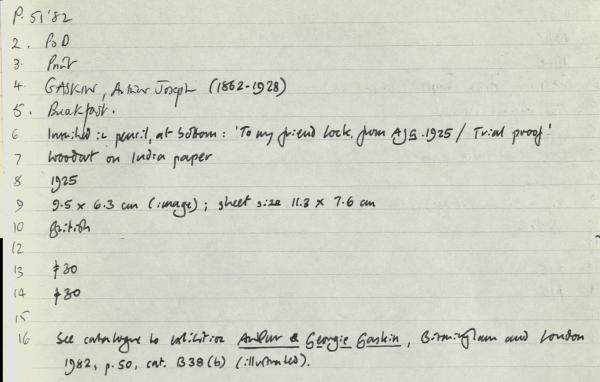 P. 51'82
2. PoD
3. Print
4. GASKIN, Arthur Joseph (1862-1928)
5. Breakfast.
6 Inscribed in pencil, at bottom: 'To my friend Lock, from AJG. 1925 / Trial proof.'
7 Woodcut on India paper
8 1925
9 9.5 x 6.3 cm (image); sheet size 11.3 x 7.6 cm
10 British
12
13 £30
14 £30
15
16 See catalogue to exhibition Arthur & Georgie Gaskin, Birmingham and London
1982, p.50, cat. B38(b) (illustrated).